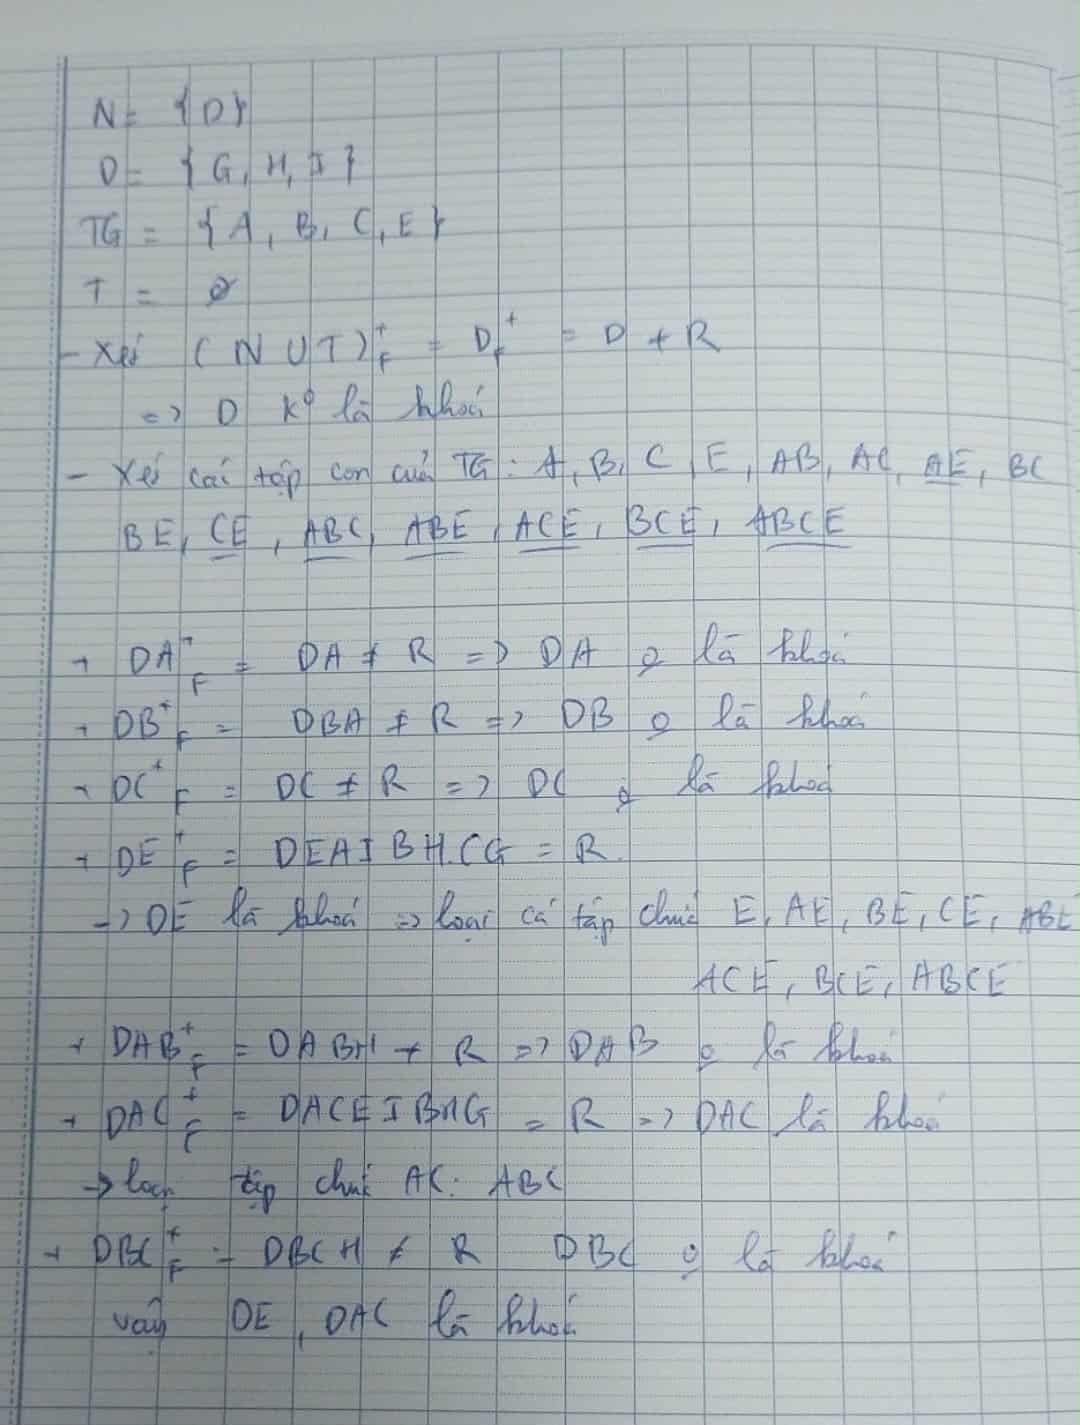 N = {D}
D = {G, H, I}
TG = {A, B, C, E}
T = ∅
- Xét (N U T)⁺F = D⁺F = D ≠ R
=> D k⁰ là khoá
- Xét các tập con của TG: A, B, C, E, AB, AC, AE, BC
BE, CE, ABC, ABE, ACE, BCE, ABCE
+ DA⁺F = DA ≠ R => DA o là khoá
+ DB⁺F = DBA ≠ R => DB o là khoá
+ DC⁺F = DC ≠ R => DC o là khoá
+ DE⁺F = DEAIBH.CG = R.
-> DE là khoá => loại cá tập chứa E, AE, BE, CE, ABE
ACE, BCE, ABCE
+ DAB⁺F = DABH ≠ R => DAB o là khoá
+ DAC⁺F = DACEIBHG = R => DAC là khoá
-> loại tập chứa AC: ABC
+ DBC⁺F = DBCH ≠ R DBC o là khoá
vậy DE, DAC là khoá